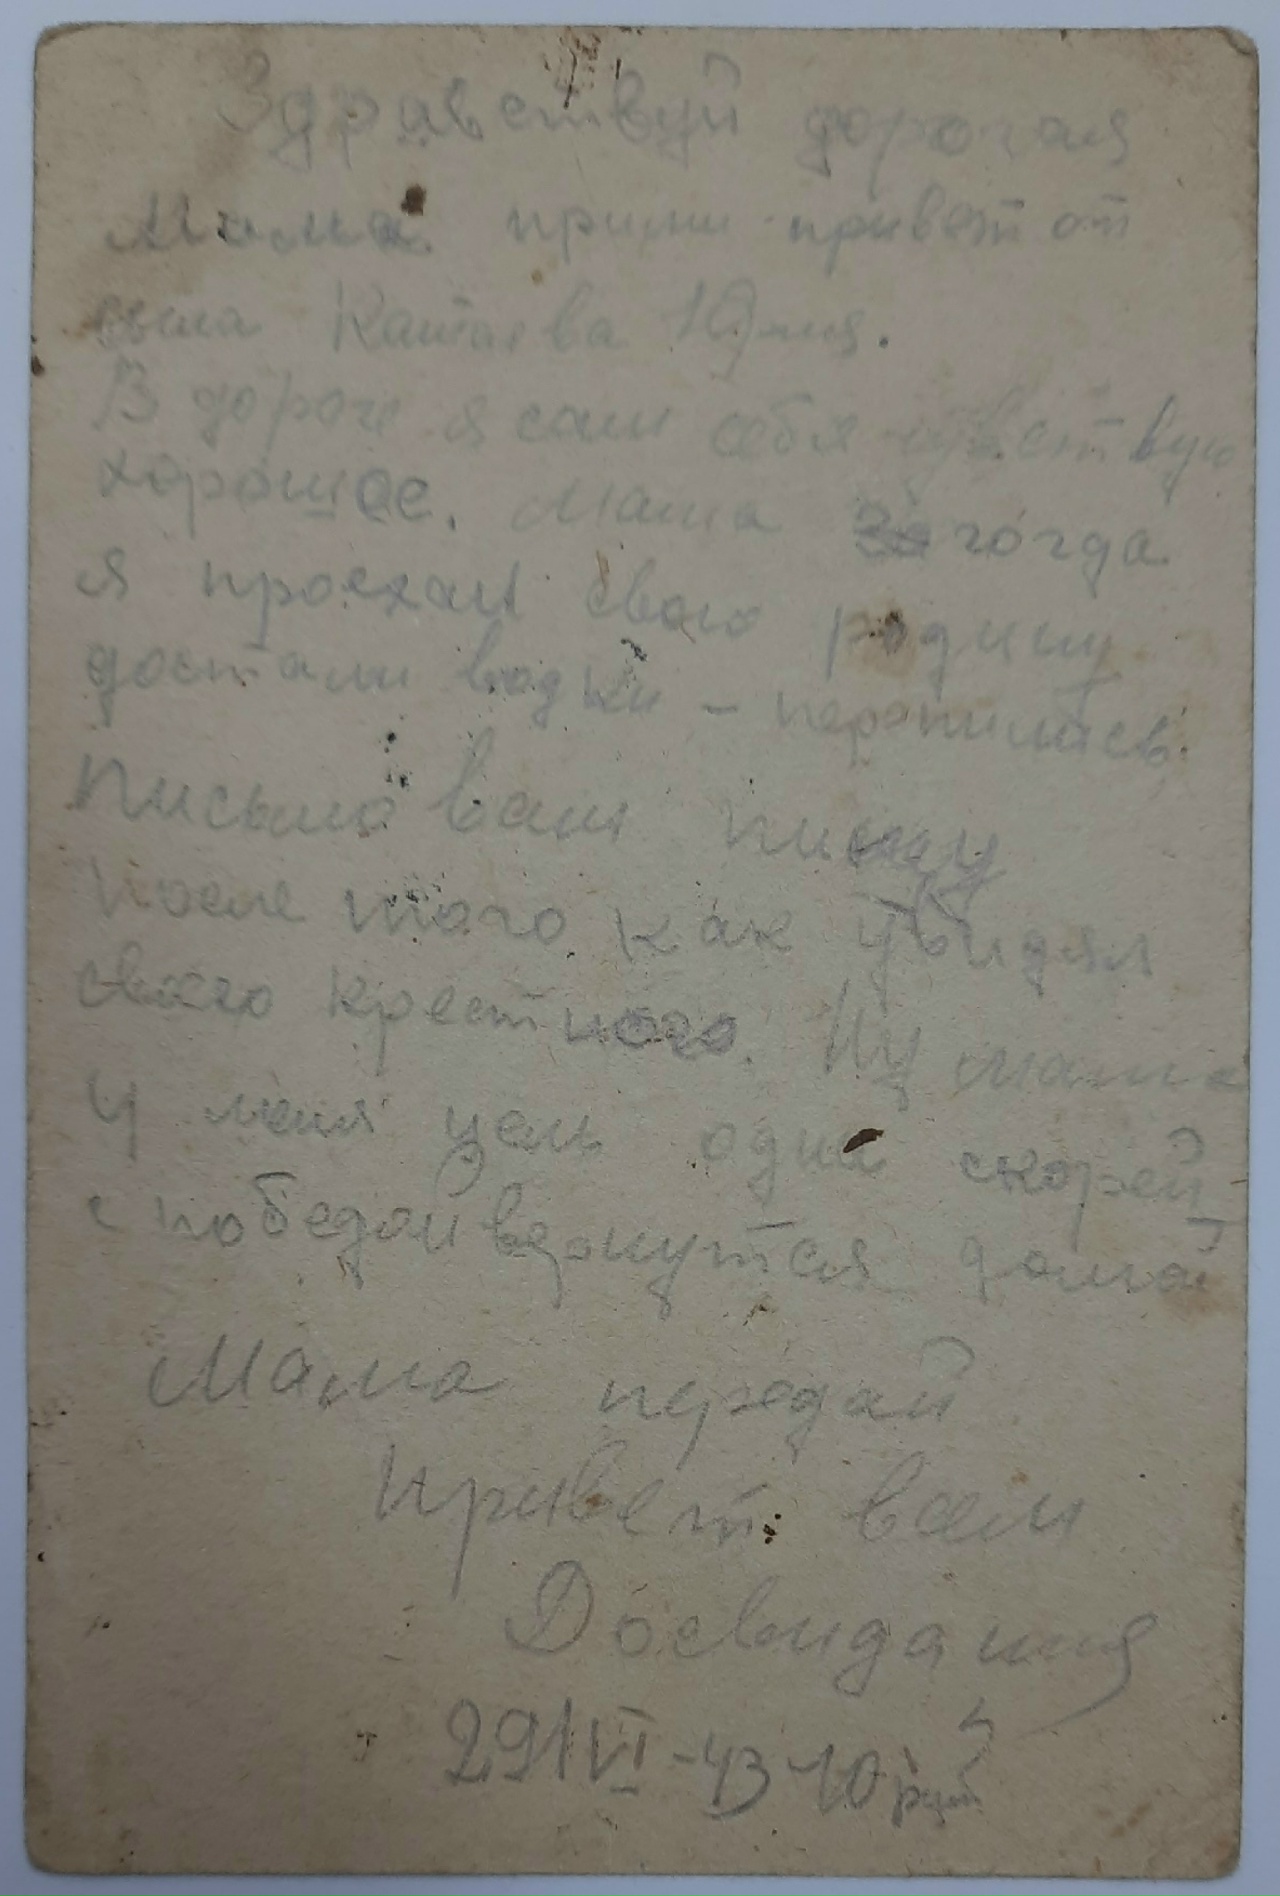 Здравствуй дорогая
Мама прими привет от
сына Катаева Юрия.
В дороге я сам себя чувствую
хорошее. Мама когда
я проехал свою родину
достали водки – перепились.
Письмо вам пишу
после того как увидял
своего крестного. Ну мама
у меня цель одна скорей
с победой вернутся домой
Мама передай
Привет всем
Досвидания
29/VI-43